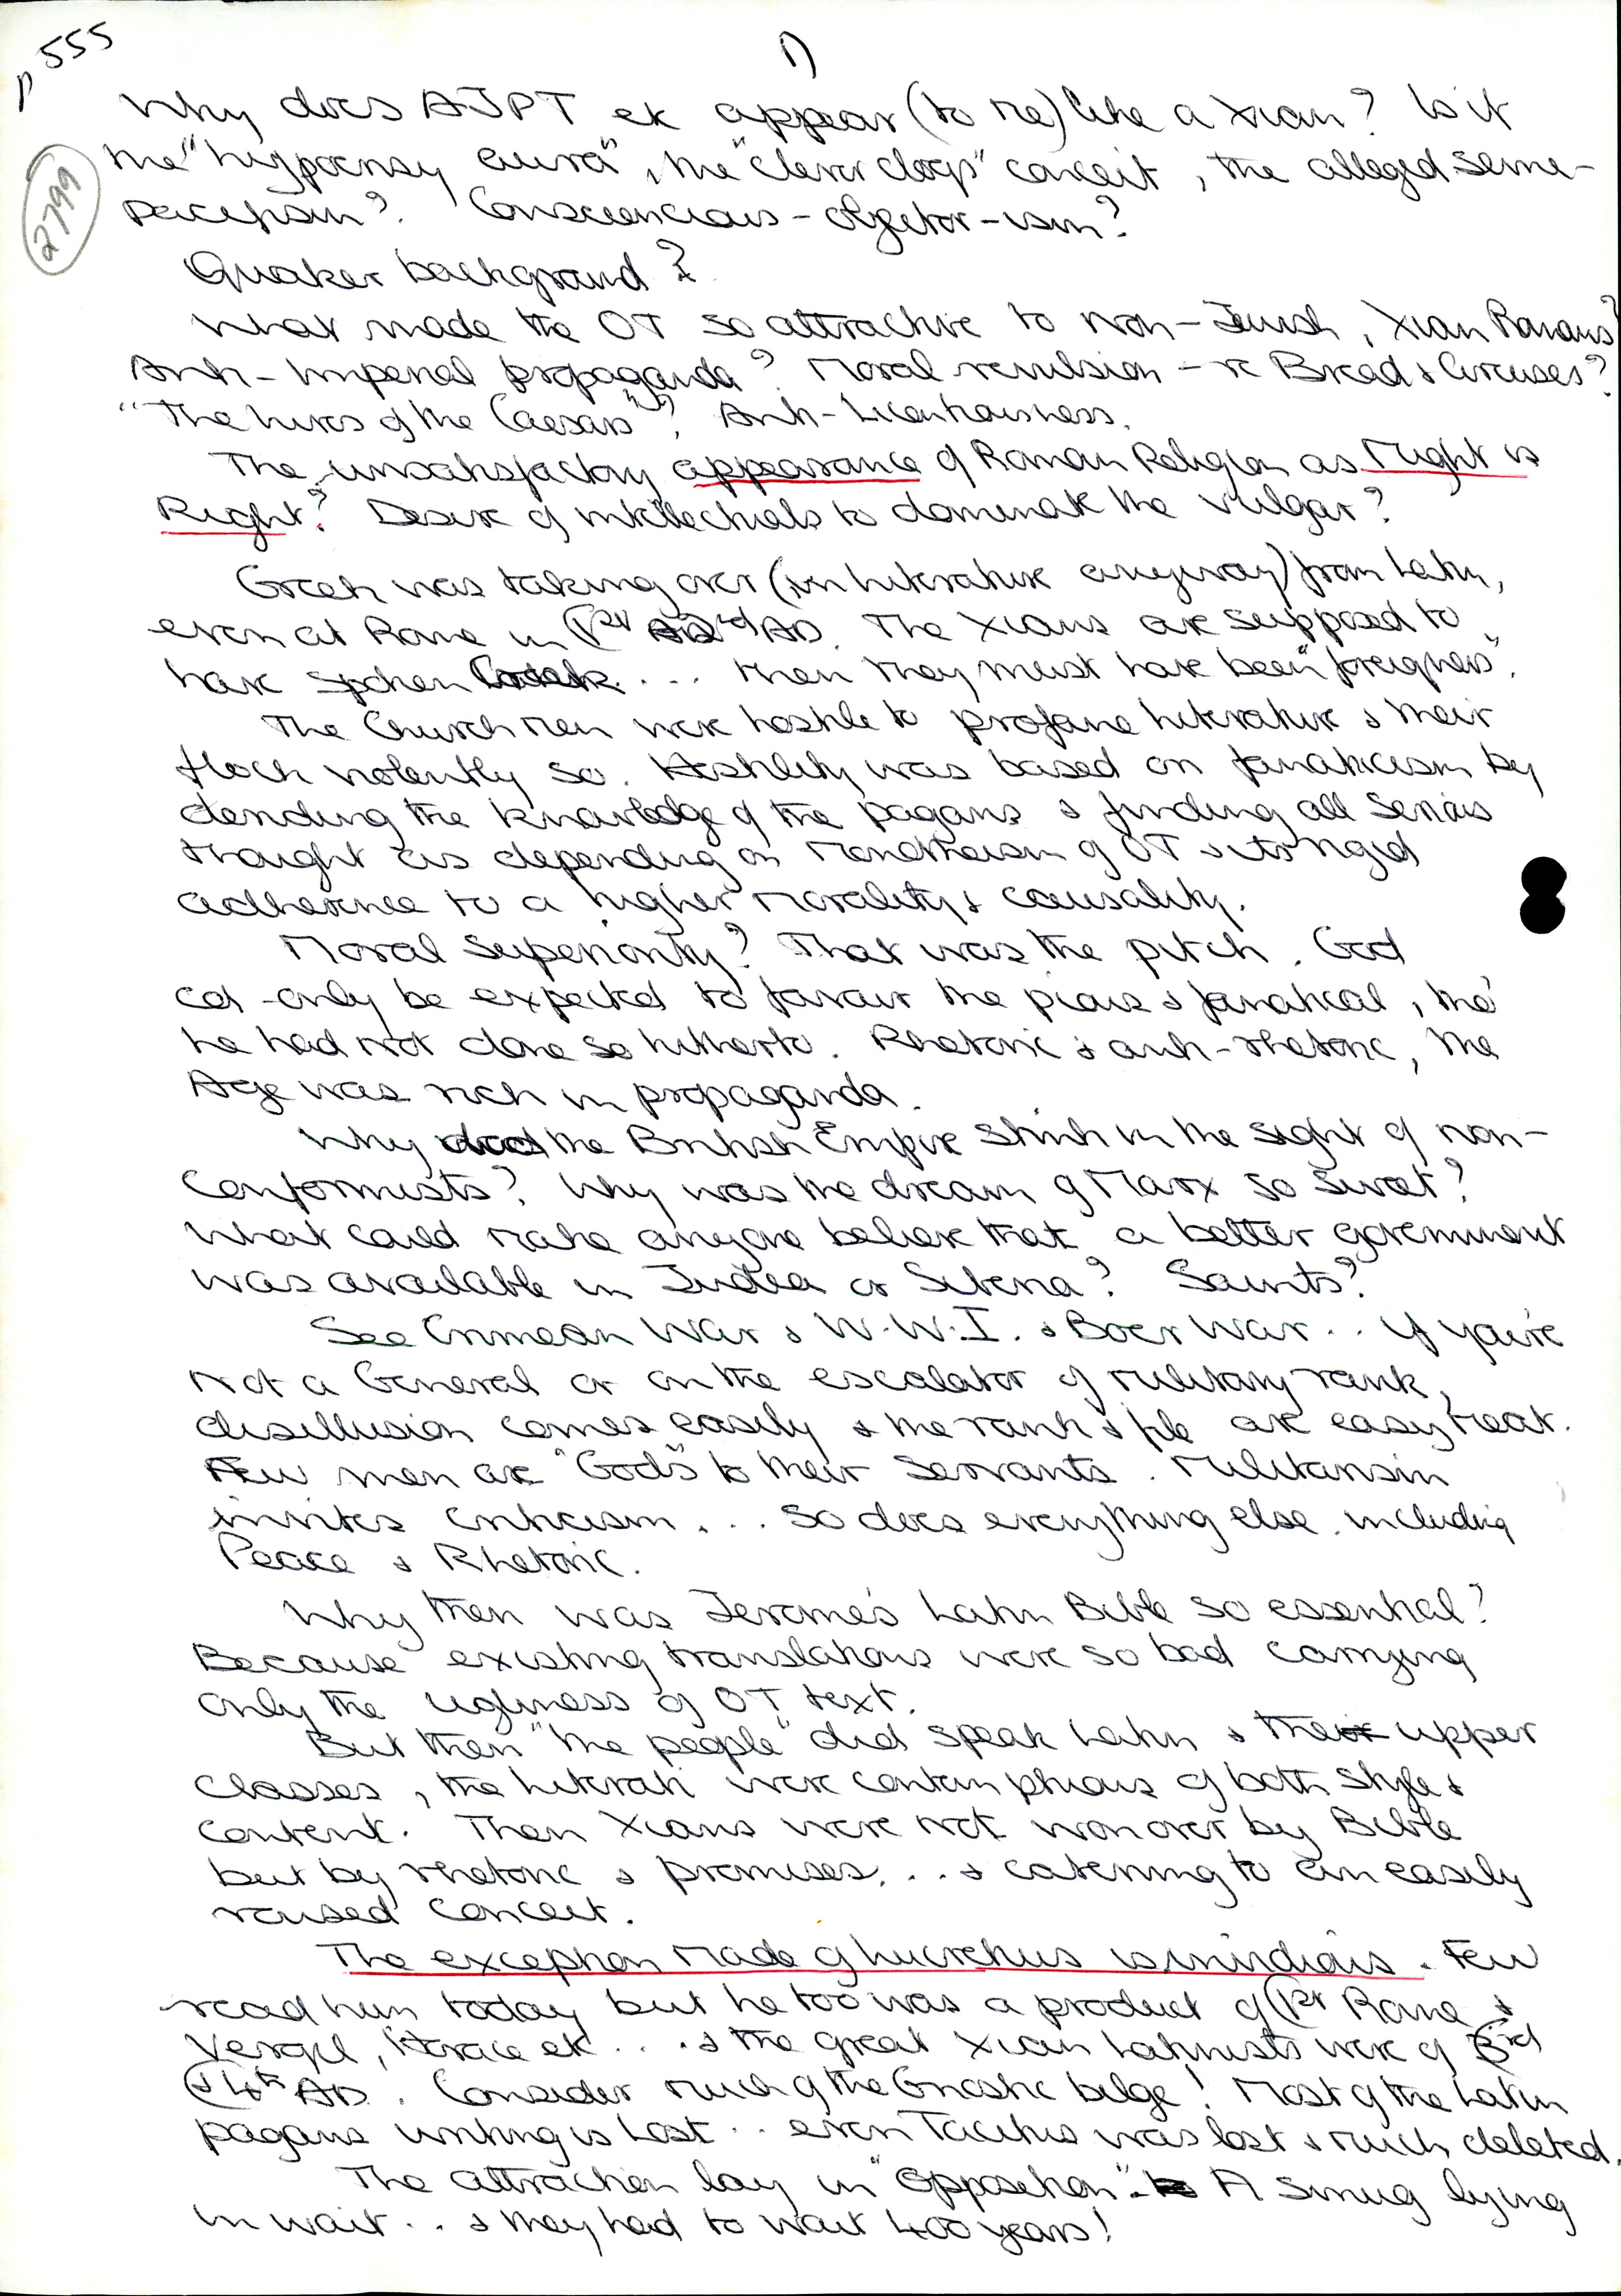 p 555
1)
2799
Why does AJPT etc appear (to me) like a Xian? Is it
the "hypocrisy aura", the "clever clogs" conceit, the alleged semi-
pacifism? Consciencious-objector-ism?
Quaker background?
What made the OT so attractive to non-Jewish, Xian Romans?
Anti-Imperial propaganda? Moral revulsion - re Bread & Circuses?
"The Lives of the Caesars"? Anti-Licentiousness.
The unsatisfactory appearance of Roman Religion as Might is
Right? Desire of intellectuals to dominate the vulgar?
Greek was taking over (in literature anyway) from Latin,
even at Rome in AD. The Xians are supposed to
have spoken Greek .... then they must have been "foreigners".
The Church men were hostile to profane literature & their
flock violently so. Hostility was based on fanaticism by
deriding the knowledge of the pagans & finding all serious
thought as depending on Monotheism of OT & its rigid
adherence to a higher morality & causality.
Moral superiority? That was the pitch. God
cd only be expected to favour the pious & fanatical, tho'
he had not done so hitherto. Rhetoric & anti-rhetoric, the
Age was rich in propaganda.
Why did the British Empire stink in the sight of non-
conformists? Why was the dream of Marx so sweet?
What could make anyone believe that a better government
was available in Judea or Siberia? Saints?
See Crimean War & W.W.I. & Boer War .. If you're
not a General or on the escalator of military rank,
disillusion comes easily & the rank & file are easy meat.
Few men are "Gods" to their servants. Militarism
invites criticism ... so does everything else, including
Peace & Rhetoric.
Why then was Jerome's Latin Bible so essential?
Because existing translations were so bad carrying
only the ugliness of OT text.
But then "the people" did speak Latin & the upper
classes, the literati were contemptuous of both style &
content. Then Xians were not won over by Bible
but by rhetoric & promises... & catering to an easily
roused conceit.
The exception made of Lucretius is invidious. Few
read him today but he too was a product of C1st Rome &
Vergil, Horace etc ... & the great Xian Latinists were of 3rd
& 4th AD. Consider much of the Gnostic bilge! Most of the Latin
pagans writing is lost .. even Tacitus was lost & much deleted.
The attraction lay in "Opposition". A smug lying
in wait .. & they had to wait 400 years!